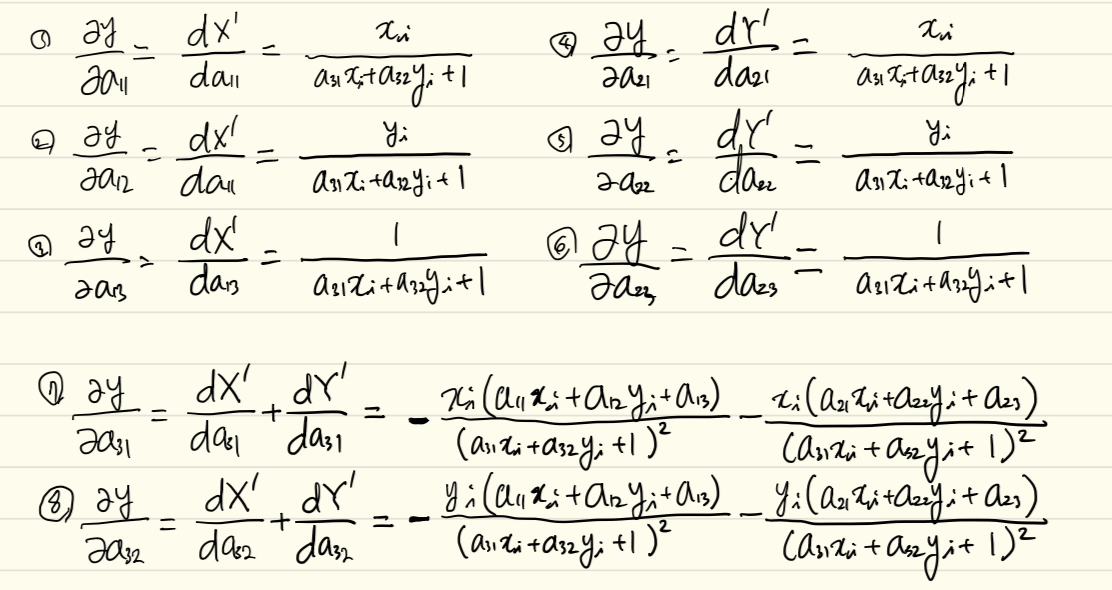 ① ∂y/∂a₁₁ = dX'/da₁₁ = xᵢ/(a₃₁xᵢ+a₃₂yᵢ+1) ④ ∂y/∂a₂₁ = dY'/da₂₁ = xᵢ/(a₃₁xᵢ+a₃₂yᵢ+1)
② ∂y/∂a₁₂ = dX'/da₁₁ = yᵢ/(a₃₁xᵢ+a₃₂yᵢ+1) ⑤ ∂y/∂a₂₂ = dY'/da₂₂ = yᵢ/(a₃₁xᵢ+a₃₂yᵢ+1)
③ ∂y/∂a₁₃ = dX'/da₁₃ = 1/(a₃₁xᵢ+a₃₂yᵢ+1) ⑥ ∂y/∂a₂₃ = dY'/da₂₃ = 1/(a₃₁xᵢ+a₃₂yᵢ+1)
⑦ ∂y/∂a₃₁ = dX'/da₃₁ + dY'/da₃₁ = - xᵢ(a₁₁xᵢ+a₁₂yᵢ+a₁₃)/(a₃₁xᵢ+a₃₂yᵢ+1)² - xᵢ(a₂₁xᵢ+a₂₂yᵢ+a₂₃)/(a₃₁xᵢ+a₃₂yᵢ+1)²
⑧ ∂y/∂a₃₂ = dX'/da₃₂ + dY'/da₃₂ = - yᵢ(a₁₁xᵢ+a₁₂yᵢ+a₁₃)/(a₃₁xᵢ+a₃₂yᵢ+1)² - yᵢ(a₂₁xᵢ+a₂₂yᵢ+a₂₃)/(a₃₁xᵢ+a₃₂yᵢ+1)²